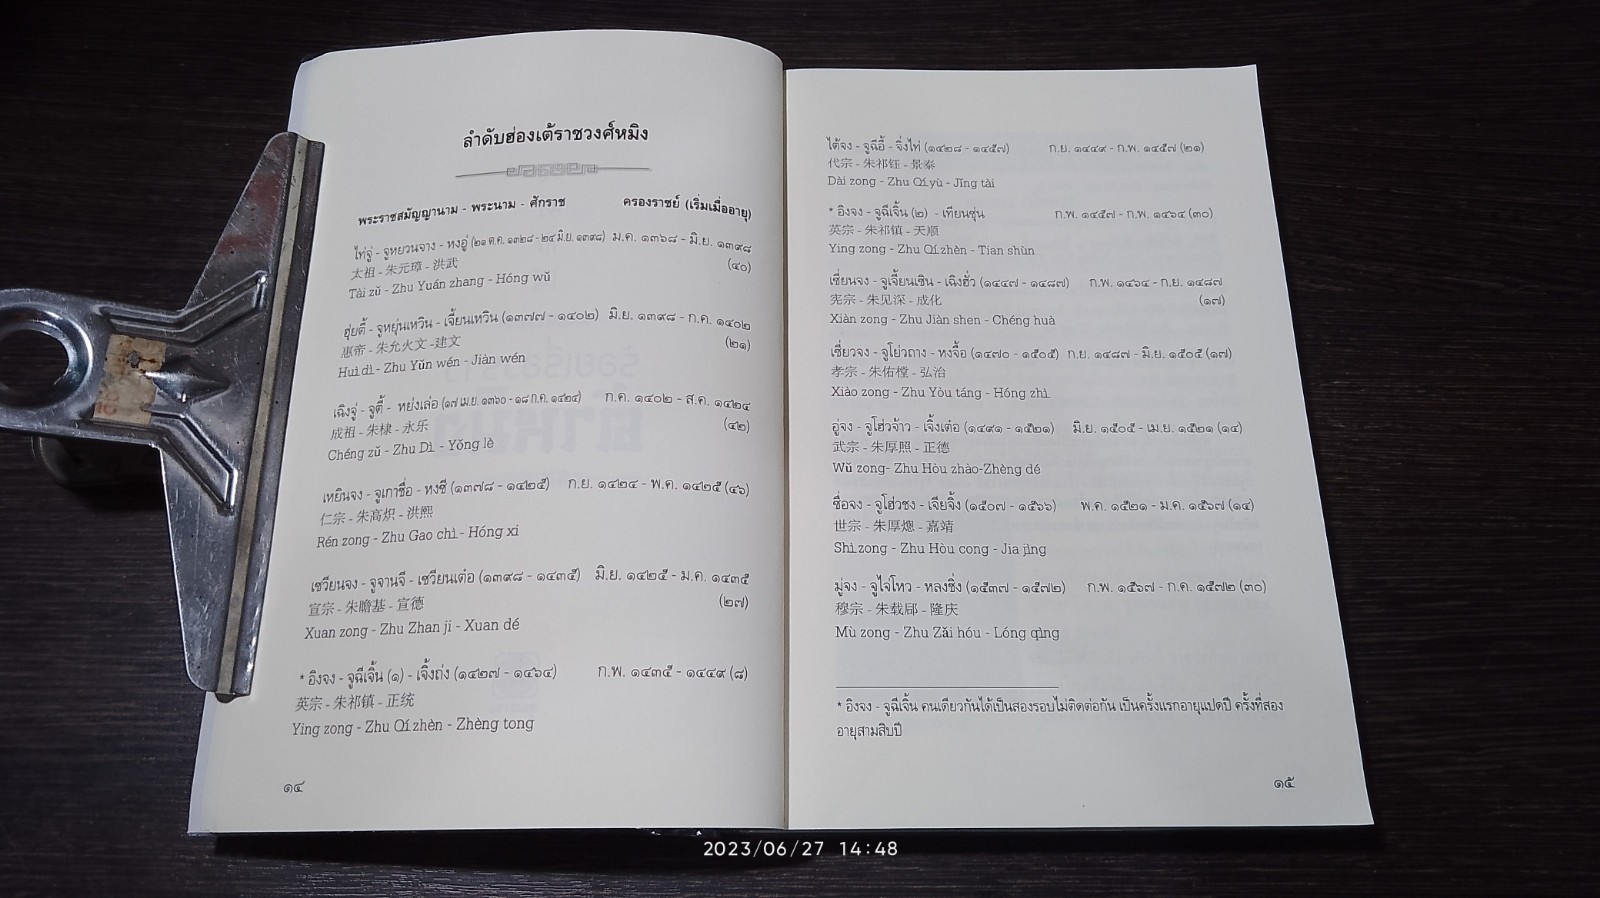 ลำดับฮ่องเต้ราชวงศ์หมิง
พระราชสมัญญานาม - พระนาม - ศักราช ครองราชย์ (เริ่มเมื่ออายุ)
ไท่จู่ - จูหยวนจาง - หงอู่ (๒๑ ต.ค. ๑๓๒๘ - ๒๔ มิ.ย. ๑๓๙๘) ม.ค. ๑๓๖๘ - มิ.ย. ๑๓๙๘
太祖 - 朱元璋 - 洪武 (๔๐)
Tài zǔ - Zhu Yuán zhang - Hóng wǔ
ฮุ่ยตี้ - จูหยุ่นเหวิน - เจี้ยนเหวิน (๑๓๗๗ - ๑๔๐๒) มิ.ย. ๑๓๙๘ - ก.ค. ๑๔๐๒
惠帝 - 朱允火文 - 建文 (๒๑)
Huì dì - Zhu Yǔn wén - Jiàn wén
เฉิงจู่ - จูตี้ - หย่งเล่อ (๑๗ เม.ย. ๑๓๖๐ - ๑๘ ก.ค. ๑๔๒๔) ก.ค. ๑๔๐๒ - ส.ค. ๑๔๒๔
成祖 - 朱棣 - 永乐 (๔๒)
Chéng zǔ - Zhu Dì - Yǒng lè
เหยินจง - จูเกาชื่อ - หงซี (๑๓๗๘ - ๑๔๒๕) ก.ย. ๑๔๒๔ - พ.ค. ๑๔๒๕ (๔๖)
仁宗 - 朱高炽 - 洪熙
Rén zong - Zhu Gao chì - Hóng xi
เซวียนจง - จูจานจี - เซวียนเต๋อ (๑๓๙๘ - ๑๔๓๕) มิ.ย. ๑๔๒๕ - ม.ค. ๑๔๓๕
宣宗 - 朱瞻基 - 宣德 (๒๗)
Xuan zong - Zhu Zhan ji - Xuan dé
* อิงจง - จูฉีเจิ้น (๑) - เจิ้งถ่ง (๑๔๒๗ - ๑๔๖๔) ก.พ. ๑๔๓๕ - ๑๔๔๙ (๘)
英宗 - 朱祁镇 - 正统
Ying zong - Zhu Qí zhèn - Zhèng tong
๑๔
ไต้จง - จูฉีอี้ - จิ่งไท่ (๑๔๒๘ - ๑๔๕๗) ก.ย. ๑๔๔๙ - ก.พ. ๑๔๕๗ (๒๑)
代宗 - 朱祁钰 - 景泰
Dài zong - Zhu Qí yù - Jǐng tài
* อิงจง - จูฉีเจิ้น (๒) - เทียนซุ่น ก.พ. ๑๔๕๗ - ก.พ. ๑๔๖๔ (๓๐)
英宗 - 朱祁镇 - 天顺
Ying zong - Zhu Qí zhèn - Tian shùn
เซี่ยนจง - จูเจี้ยนเซิน - เฉิงฮั่ว (๑๔๔๗ - ๑๔๘๗) ก.พ. ๑๔๖๔ - ก.ย. ๑๔๘๗
宪宗 - 朱见深 - 成化 (๑๗)
Xiàn zong - Zhu Jiàn shen - Chéng huà
เซี่ยวจง - จูโย่วถาง - หงจื้อ (๑๔๗๐ - ๑๕๐๕) ก.ย. ๑๔๘๗ - มิ.ย. ๑๕๐๕ (๑๗)
孝宗 - 朱佑樘 - 弘治
Xiào zong - Zhu Yòu táng - Hóng zhì
อู่จง - จูโฮ่วจ้าว - เจิ้งเต๋อ (๑๔๙๑ - ๑๕๒๑) มิ.ย. ๑๕๐๕ - เม.ย. ๑๕๒๑ (๑๔)
武宗 - 朱厚照 - 正德
Wǔ zong- Zhu Hòu zhào-Zhèng dé
ซื่อจง - จูโฮ่วชง - เจียจิ้ง (๑๕๐๗ - ๑๕๖๖) พ.ค. ๑๕๒๑ - ม.ค. ๑๕๖๗ (๑๔)
世宗 - 朱厚熜 - 嘉靖
Shì zong - Zhu Hòu cong - Jia jìng
มู่จง - จูไจ่โหว - หลงชิ่ง (๑๕๓๗ - ๑๕๗๒) ก.พ. ๑๕๖๗ - ก.ค. ๑๕๗๒ (๓๐)
穆宗 - 朱载郈 - 隆庆
Mù zong - Zhu Zǎi hóu - Lóng qìng
* อิงจง - จูฉีเจิ้น คนเดียวกันได้เป็นสองรอบไม่ติดต่อกัน เป็นครั้งแรกอายุแปดปี ครั้งที่สอง
อายุสามสิบปี
๑๕
2023/06/27 14:48